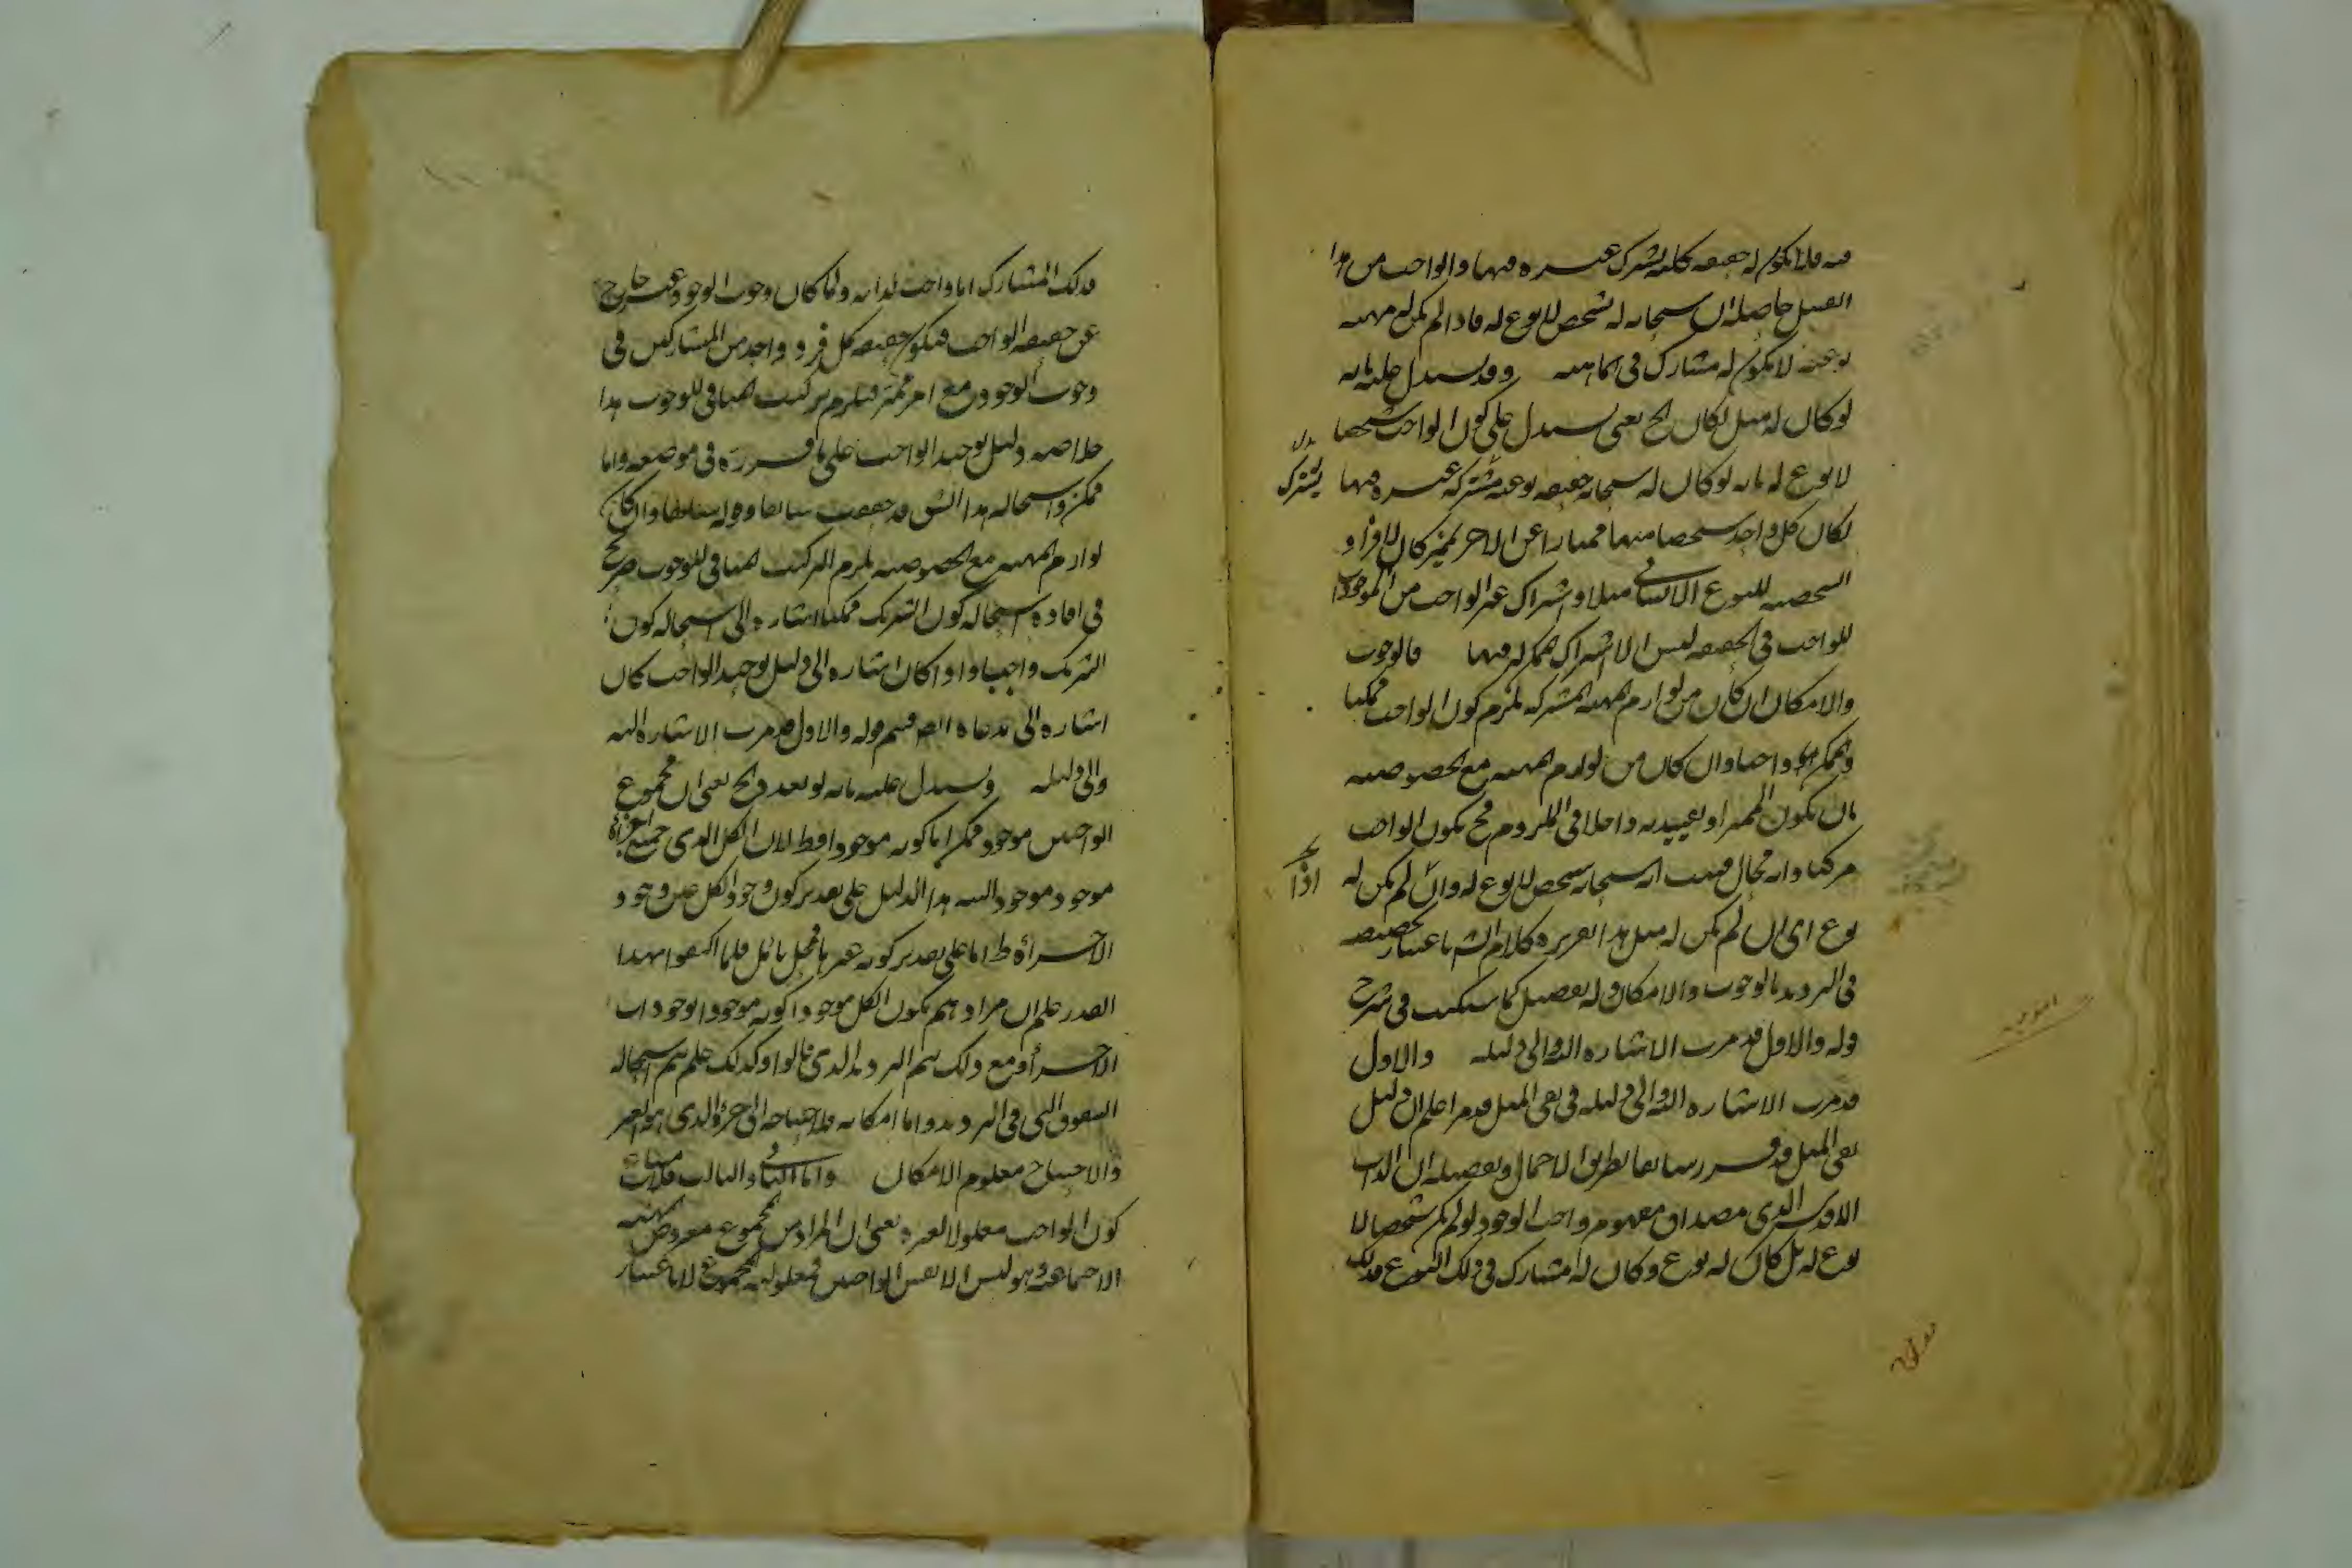 فيه فلا يكون له حقيقة كلية يشترك غيره فيها والواجب من هذا
القبيل حاصله ان سبحانه له تشخص لا نوع له فاذا لم يكن له مهية
نوعية لا يكون له مشارك في الماهية وقد يستدل عليه بانه
لو كان له مثل لكان الخ يعني يستدل على كون الواجب شخصا
لا نوع له بانه لو كان له سبحانه حقيقة نوعية مشتركة غيره فيها
يشترك
لكان كل واحد شخصا منها ممتازا عن الاخر بمميز كان للافراد
الشخصية للنوع الانساني مثلا واشتراك غير الواجب من الموجودات
للواجب في الحقيقة ليس الا اشتراك الممكن له فيها فالوجوب
والامكان ان كان من لوازم المهية المشتركة يلزم كون الواجب ممكنا
والممكن واجبا وان كان من لوازم المهية مع الخصوصية
بان يكون المميز او تقييده داخلا في الملزوم فح يكون الواجب
مركبا وانه محال فثبت انه سبحانه شخص لا نوع له وان لم يكن له
اذا
نوع اي ان لم يكن له مثل هذا تقرير كلام الش باعتبار تخصيصه
في الترديد بالوجوب والامكان وله تفصيل كما سيكتب في شرح
قوله والاول قد مرت الاشارة اليه والى دليله والاول
قد مرت الاشارة اليه والى دليله في نفي المثل قد مر اعلم ان دليل
نفي المثل قد قرر سابقا بطريق الاجمال وتفصيله ان الذات
الاقدس الذي مصداق مفهوم واجب الوجود لو لم يكن شخصا لا
نوع له بل كان له نوع وكان له مشارك في ذلك النوع فذلك
فذلك المشارك اما واجب لذاته ولما كان وجوب الوجود غير خارج
عن حقيقة الواجب فيكون حقيقة كل فرد واحد من المتشاركين في
وجوب الوجود مع امر مميز فيلزم تركيب المنافي للوجوب هذا
خلاصة دليل توحيد الواجب على ما قرره في موضعه واما
ممكن واستحالة هذا الشق قد حققت سابقا وان كان
لوازم المهية مع الخصوصية يلزم التركيب المنافي للوجوب صريح
في افادة استحالة كون الشريك ممكنا اشارة الى استحالة كون
الشريك واجبا واذا كان اشارة الى دليل توحيد الواجب كان
اشارة الى مدعاه ايضا فتم قوله والاول قد مرت الاشارة اليه
والى دليله ويستدل عليه بانه لو تعدد الخ يعني ان مجموع
الواجبين موجود ممكن اما كونه موجودا فقط لان الكل الذي جميع اجزائه
موجود موجود البتة هذا الدليل على تقدير كون وجود الكل عين وجود
الاجزاء ظ اما على تقدير كونه غيرها فمحل تامل فلما اكتفوا بهذا
القدر علم ان مرادهم بكون الكل موجودا كونه موجودا بوجودات
الاجزاء ومع ذلك يتم الترديد الذي قالوا وكذلك علم بهم استحالة
الشقوق التي في الترديد واما امكانه فلاحتياجه الى جزئه الذي هو الغير
والاحتياج معلوم الامكان واما الثاني والثالث فلاستحالة
كون الواجب معلولا لغيره يعني ان المراد من المجموع معروض الهيئة
الاجتماعية وهو ليس الا نفس الواجبين فمعلولية المجموع لا باعتبار